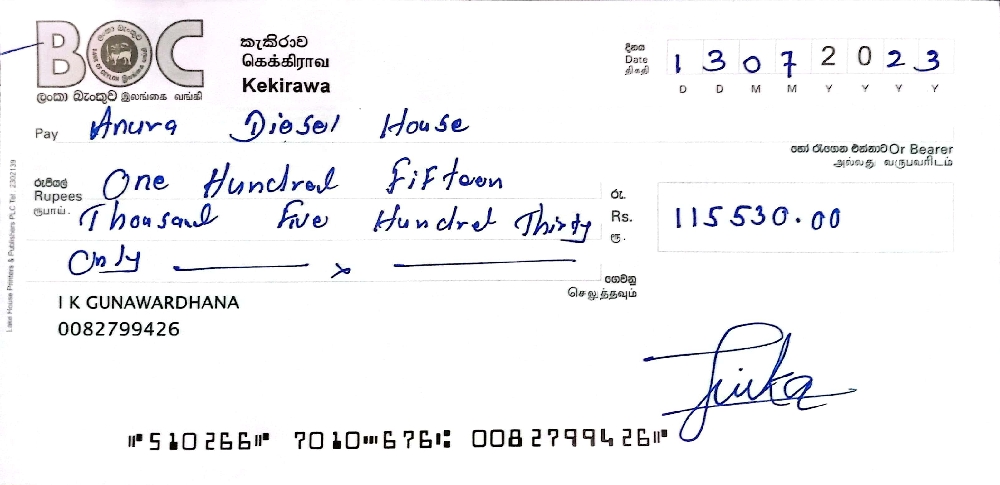 BOC
ලංකා බැංකුව இலங்கை வங்கி
කැකිරාව
கெக்கிராவ
Kekirawa
දිනය
Date
திகதி
1 3 0 7 2 0 2 3
D D M M Y Y Y Y
Pay Anura Diesel House
හෝ රැගෙන එන්නාට Or Bearer
அல்லது வருபவரிடம்
රුපියල්
Rupees One Hundred Fifteen
ரூபாய். Thousand Five Hundred Thirty
Only x
රු.
Rs. 115530.00
ரூ.
ගෙවනු
செலுத்தவும்
I K GUNAWARDHANA
0082799426
⑈510266⑈ 7010⑉676⑆ 0082799426⑈
Lake House Printers & Publishers PLC Tel : 2302139